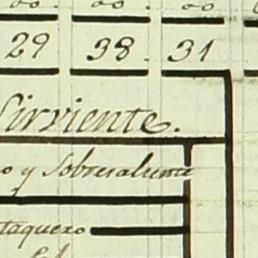 00. 00. 00
29 38. 31
Sirviente.
o y Sobresaliente
taquero